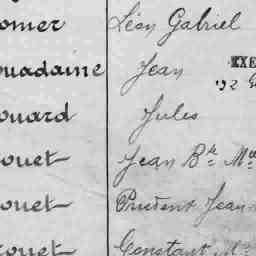 omer Léon Gabriel
ouadaine Jean EXE
ouard Jules
ouet Jean Bte
ouet Prudent Jean
ouet Constant